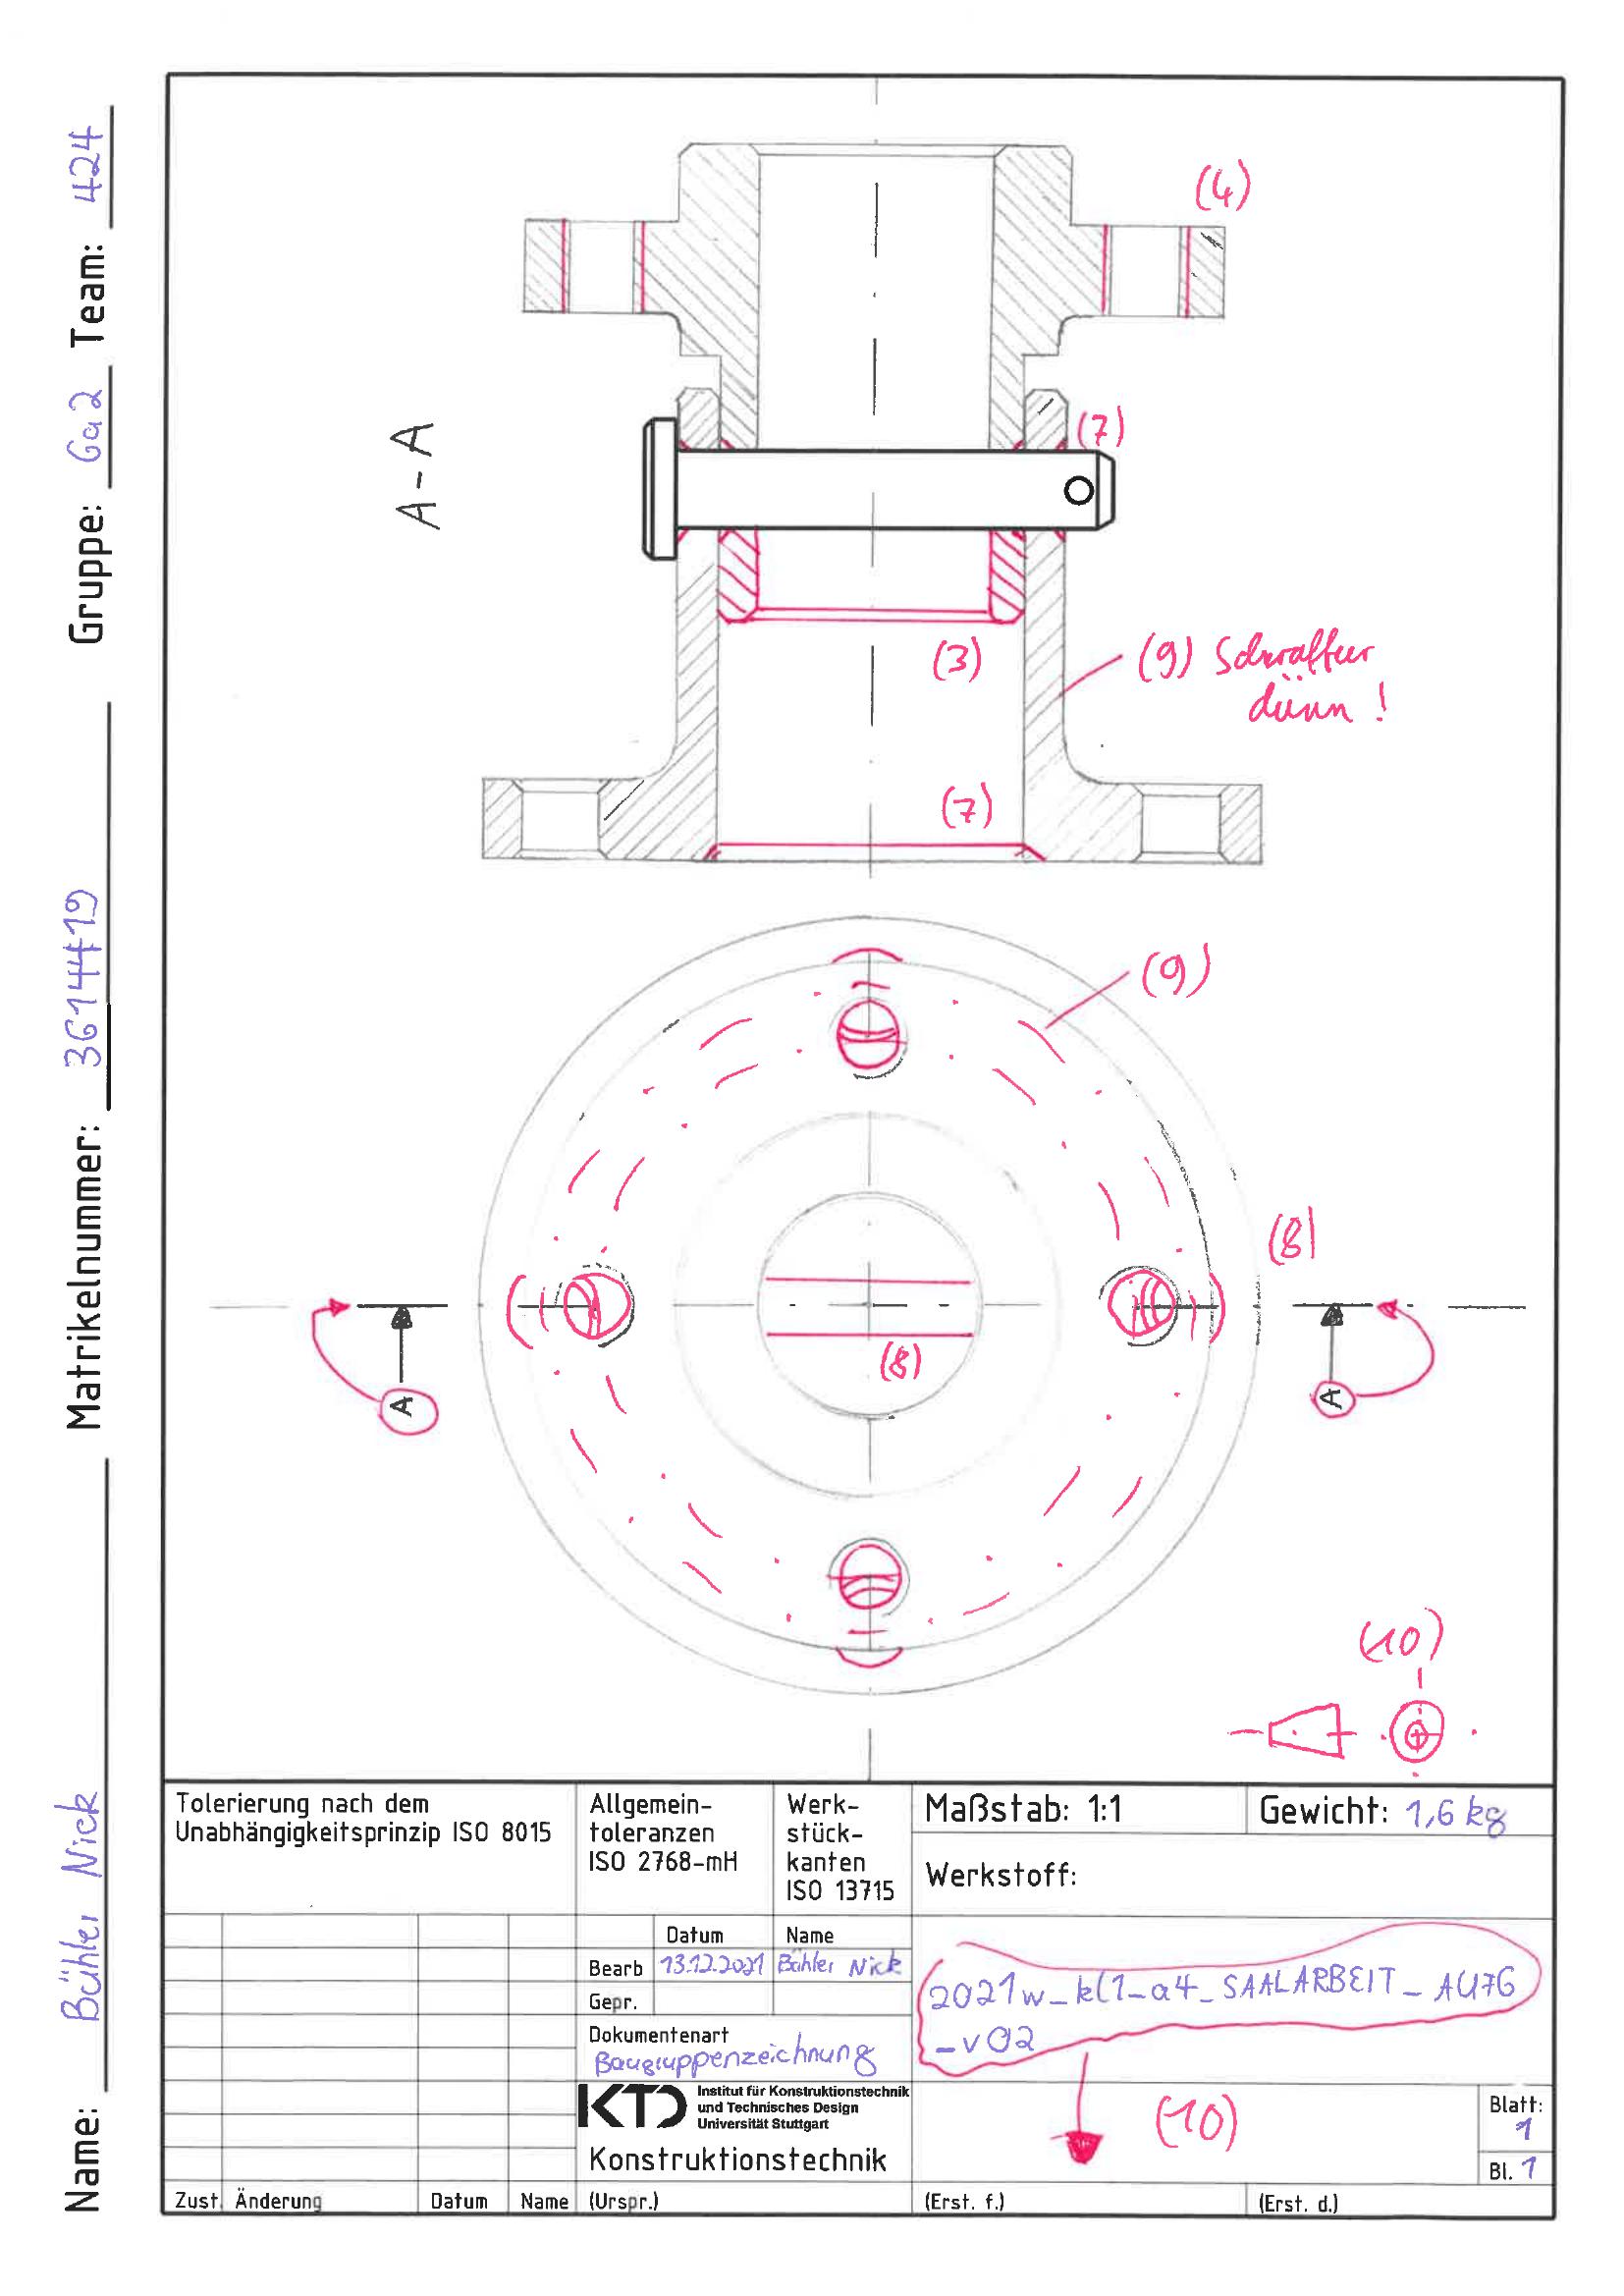 Name: Bühler Nick Matrikelnummer: 3614419 Gruppe: Ga2 Team: 424
(4)
A-A
(7)
(3)
(9) Schraffur
dünn!
(7)
(9)
(8)
(8)
A
A
(10)
Tolerierung nach dem
Unabhängigkeitsprinzip ISO 8015
Allgemein-
toleranzen
ISO 2768-mH
Werk-
stück-
kanten
ISO 13715
Maßstab: 1:1
Gewicht: 1,6 kg
Werkstoff:
Datum Name
Bearb 13.12.2021 Bühler Nick
Gepr.
Dokumentenart
Baugruppenzeichnung
2021w_kl1_a4_SAALARBEIT_AU76
_v02
(10)
KTD
Institut für Konstruktionstechnik
und Technisches Design
Universität Stuttgart
Konstruktionstechnik
Blatt:
1
Bl. 1
Zust. Änderung Datum Name (Urspr.) (Erst. f.) (Erst. d.)